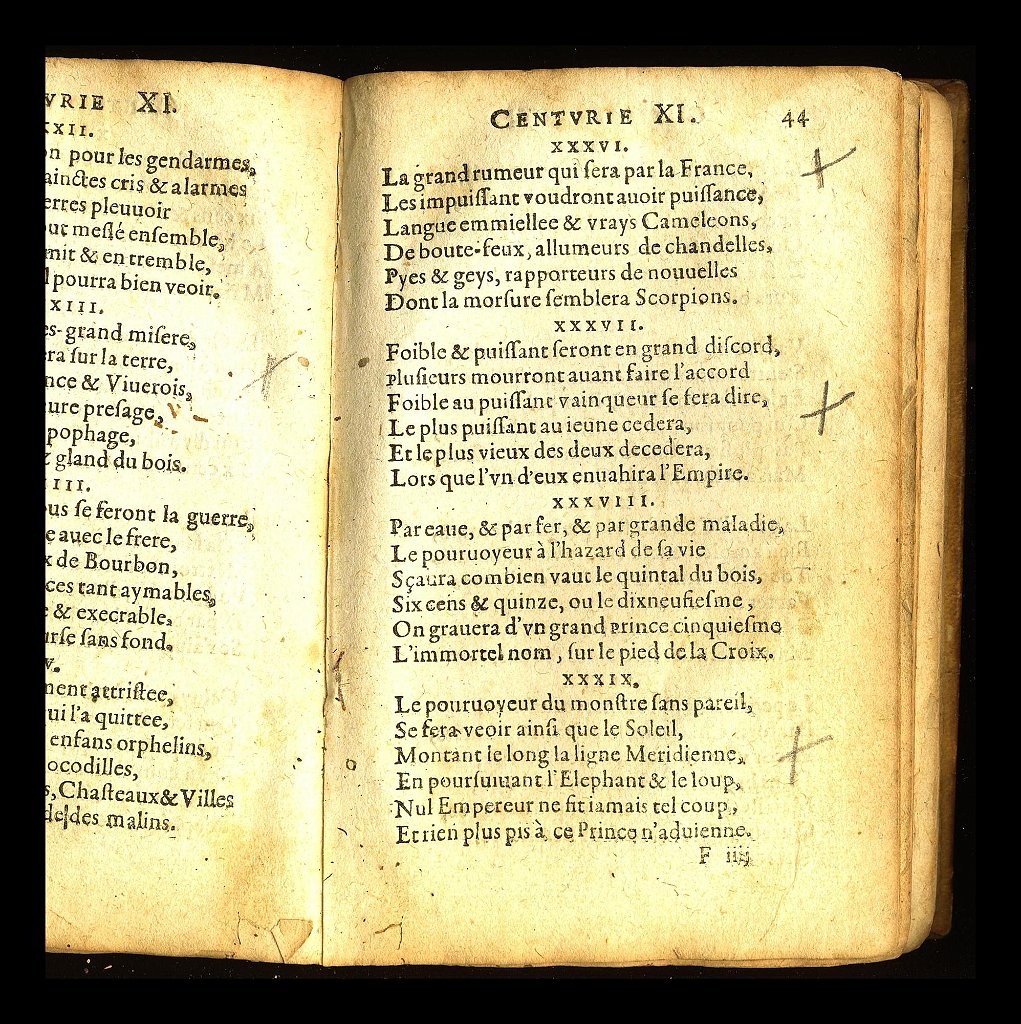 VRIE XI.
XXII.
n pour les gendarmes,
ainctes cris & alarmes
erres pleuuoir
out meſlé enſemble,
mit & en tremble,
l pourra bien veoir.
XIII.
es-grand miſere,
era ſur la terre,
nce & Viuerois,
ure preſage,
pophage,
& gland du bois.
IIII.
ous ſe feront la guerre,
e auec le frere,
x de Bourbon,
ces tant aymables,
e & execrable,
urſe ſans fond.
V.
ment attriſtee,
ui l'a quittee,
enfans orphelins,
ocodilles,
s, Chaſteaux & Villes
de des malins.
CENTVRIE XI. 44
XXXVI.
La grand rumeur qui ſera par la France,
Les impuiſſant voudront auoir puiſſance,
Langue emmiellee & vrays Cameleons,
De boute-feux, allumeurs de chandelles,
Pyes & geys, rapporteurs de nouuelles
Dont la morſure ſemblera Scorpions.
XXXVII.
Foible & puiſſant ſeront en grand diſcord,
Pluſieurs mourront auant faire l'accord
Foible au puiſſant vainqueur ſe fera dire,
Le plus puiſſant au ieune cedera,
Et le plus vieux des deux decedera,
Lors que l'vn d'eux enuahira l'Empire.
XXXVIII.
Par eaue, & par fer, & par grande maladie,
Le pouruoyeur à l'hazard de ſa vie
Sçaura combien vaut le quintal du bois,
Six cens & quinze, ou le dixneufieſme,
On grauera d'vn grand Prince cinquieſme
L'immortel nom, ſur le pied de la Croix.
XXXIX.
Le pouruoyeur du monſtre ſans pareil,
Se fera veoir ainſi que le Soleil,
Montant le long la ligne Meridienne,
En pourſuiuant l'Elephant & le loup,
Nul Empereur ne fit iamais tel coup,
Et rien plus pis à ce Prince n'aduienne.
F iiij